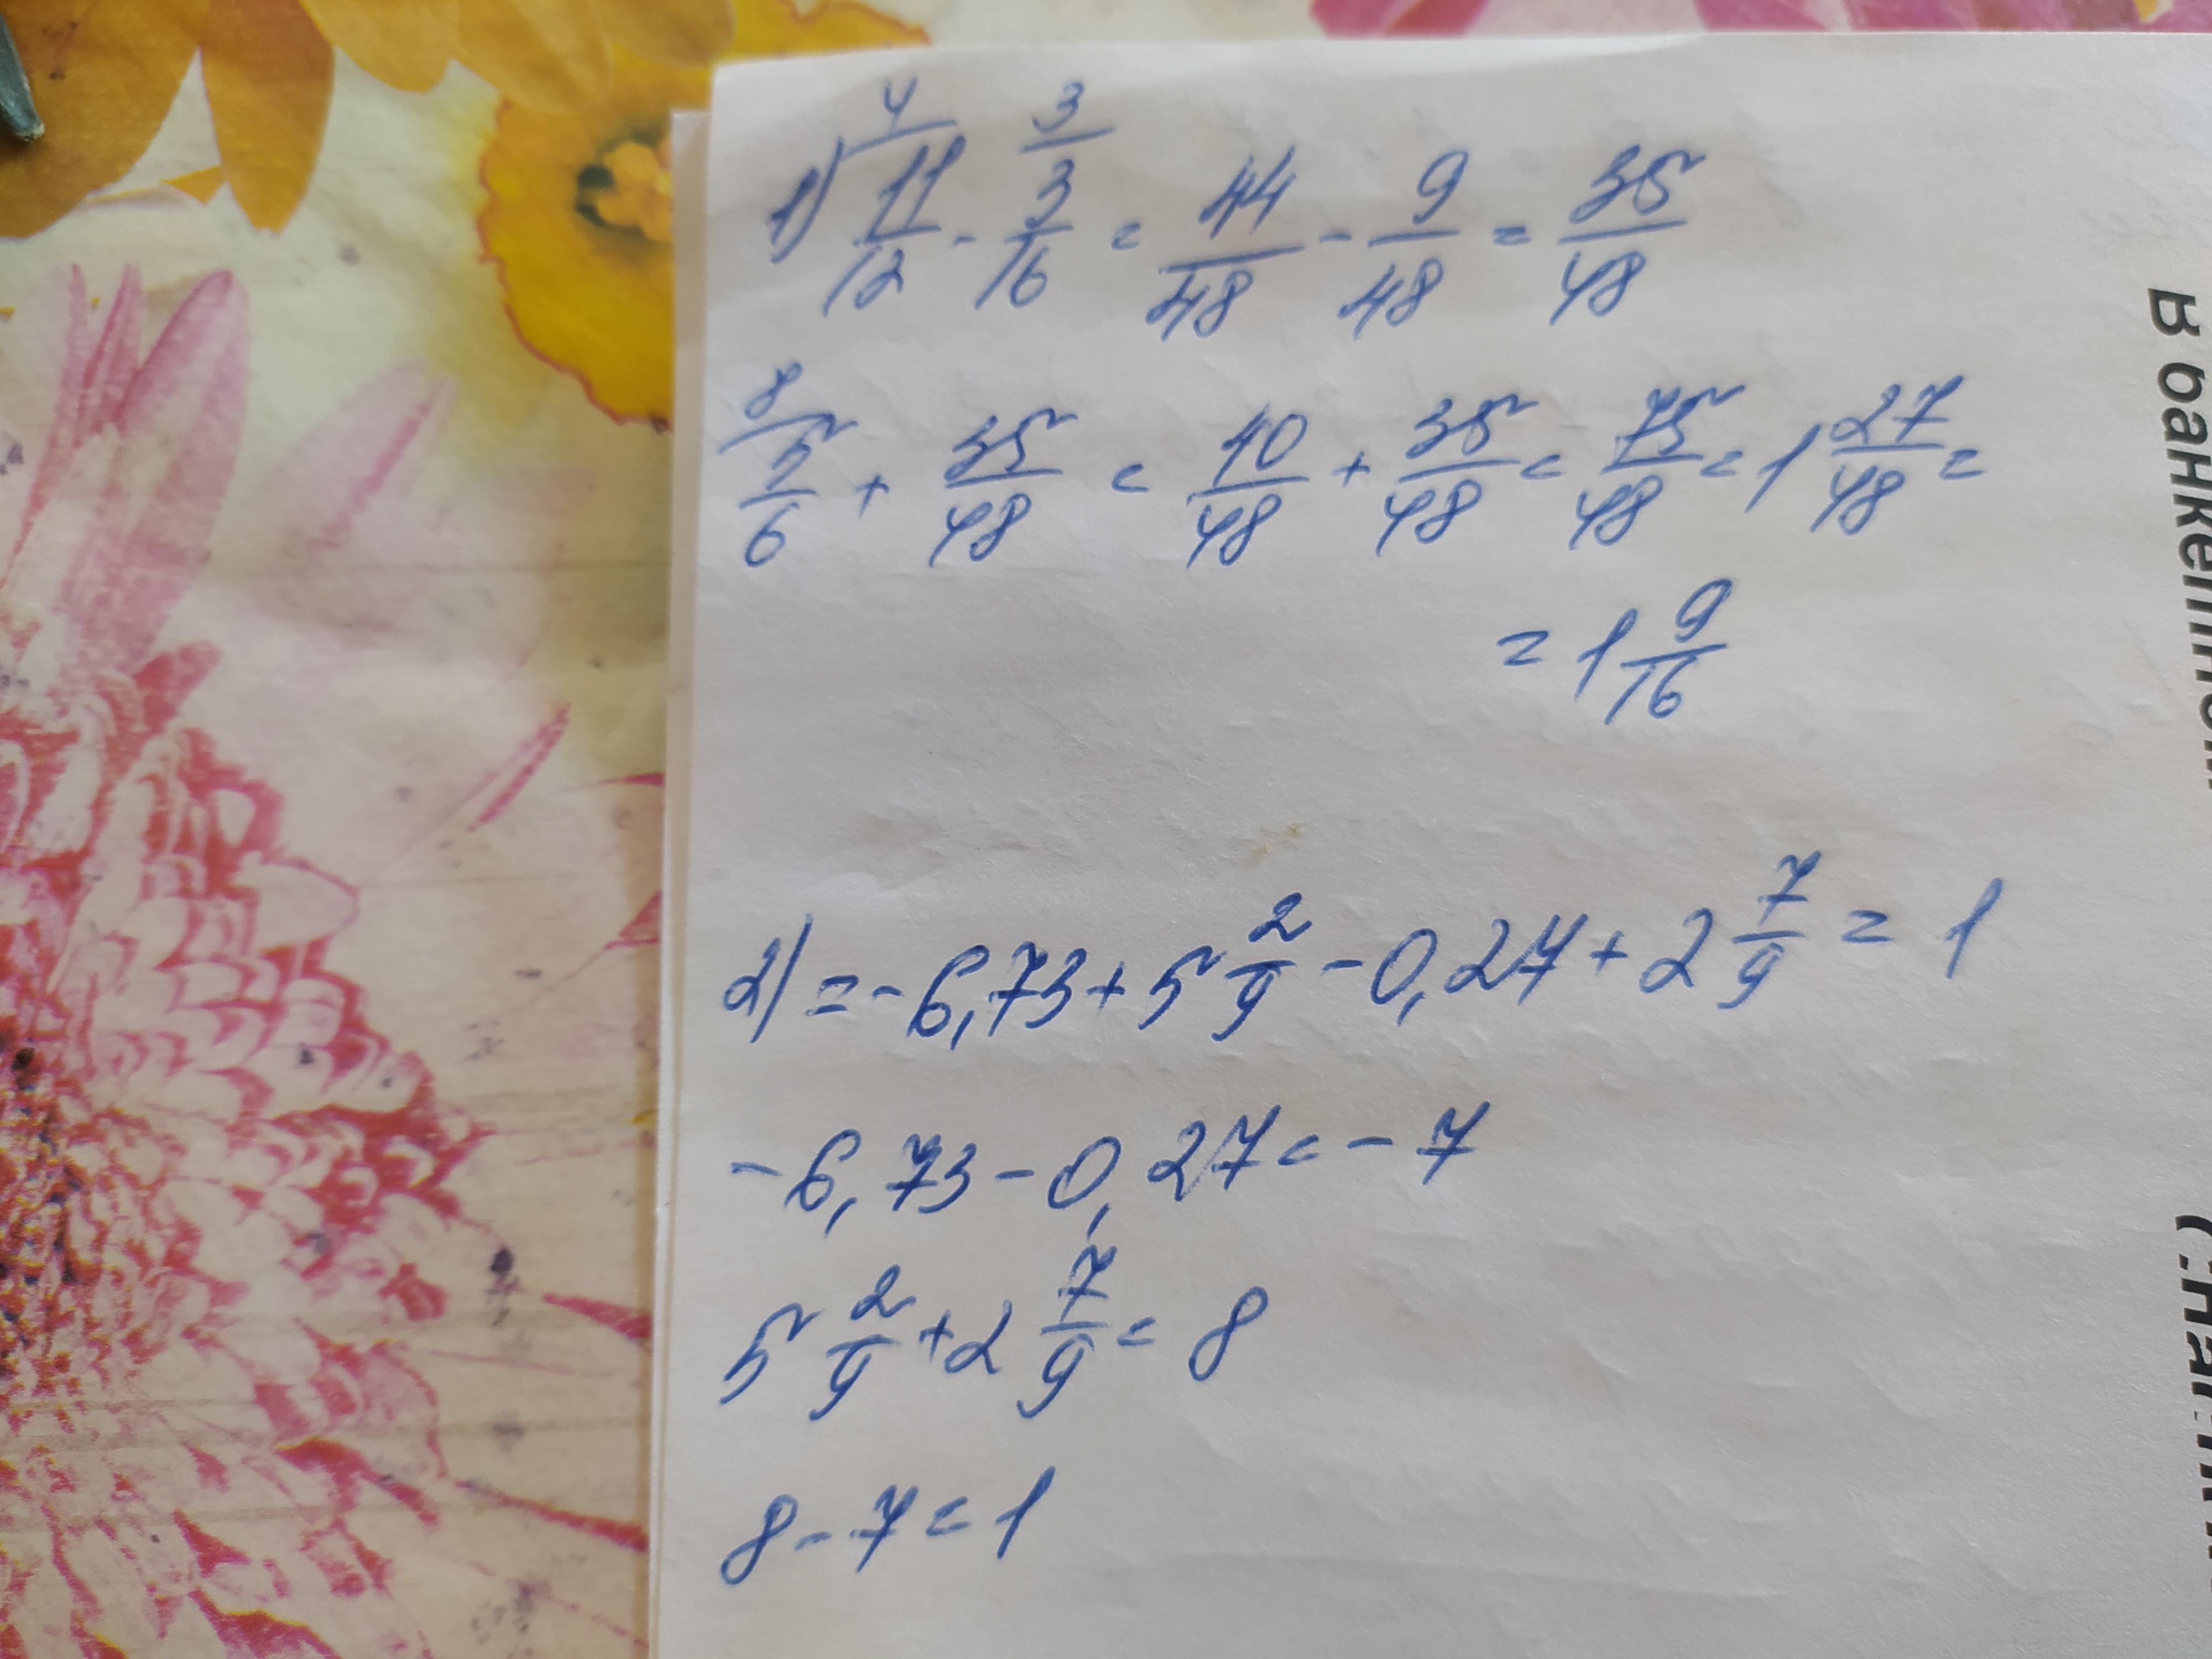 1) 4/ 11/12 - 3/ 3/16 = 44/48 - 9/48 = 35/48
8/ 5/6 + 35/48 = 40/48 + 35/48 = 75/48 = 1 27/48 =
= 1 9/16
2) = -6,73 + 5 2/9 - 0,27 + 2 7/9 = 1
-6,73 - 0,27 = -7
5 2/9 + 2 7/9 = 8
8 - 7 = 1
В банкетном